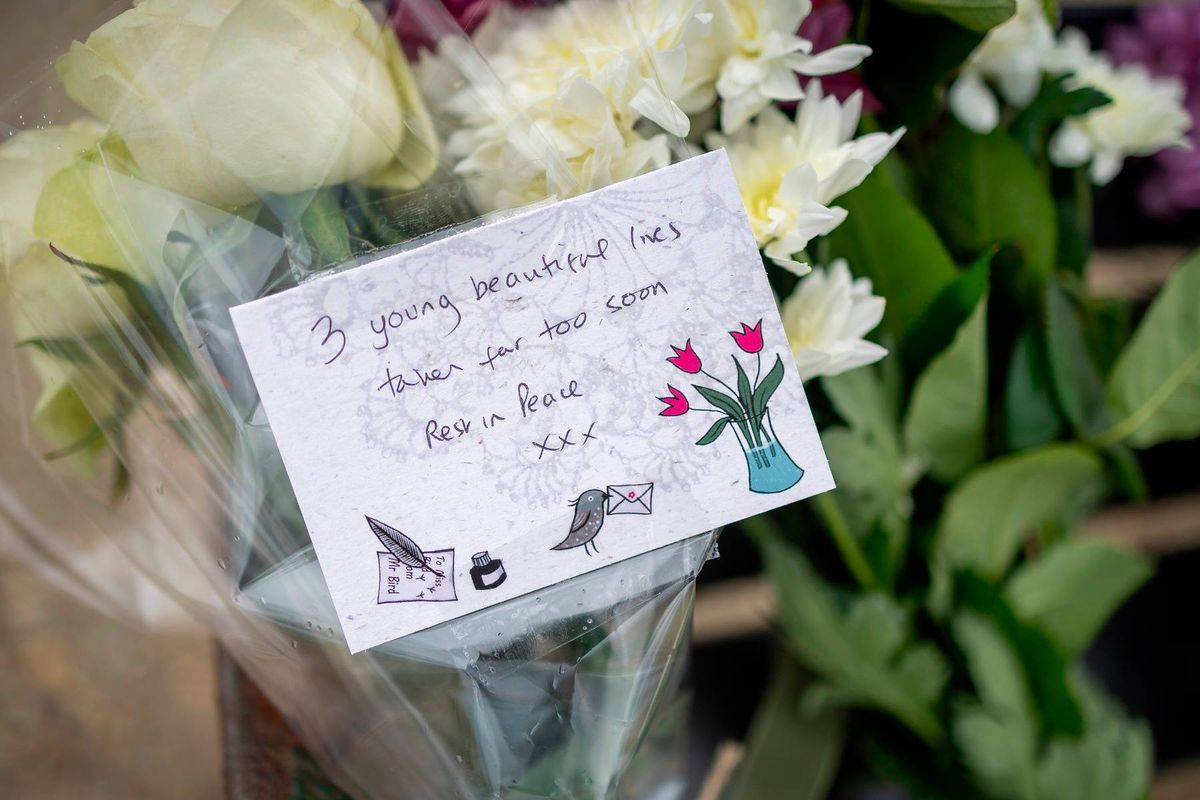 3 young beautiful lives
taken far too soon
Rest in Peace
xxx
To Miss
Bird
From
Mr Bird